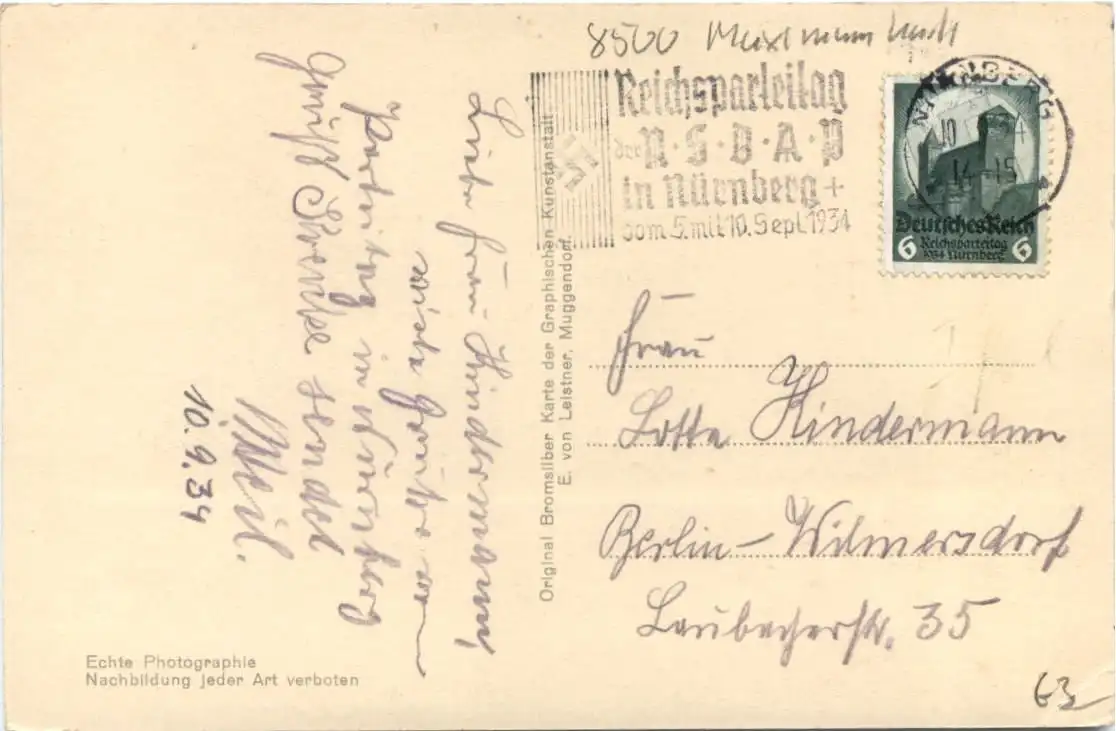 8500
Reichsparteitag
der N·S·D·A·P
in Nürnberg +
vom 5. mit 10. Sept. 1934
NÜRNBERG
10
14-15
Deutsches Reich
6 Reichsparteitag 6
1934 Nürnberg
Liebe Frau Kindermann,
viele Grüße vom
Parteitag in Nürnberg
sendet
Weil.
10.9.34
Original Bromsilber Karte der Graphischen Kunstanstalt
E. von Leistner, Muggendorf.
Frau
Lotte Kindermann
Berlin-Wilmersdorf
Laubacherstr. 35
Echte Photographie
Nachbildung jeder Art verboten
63